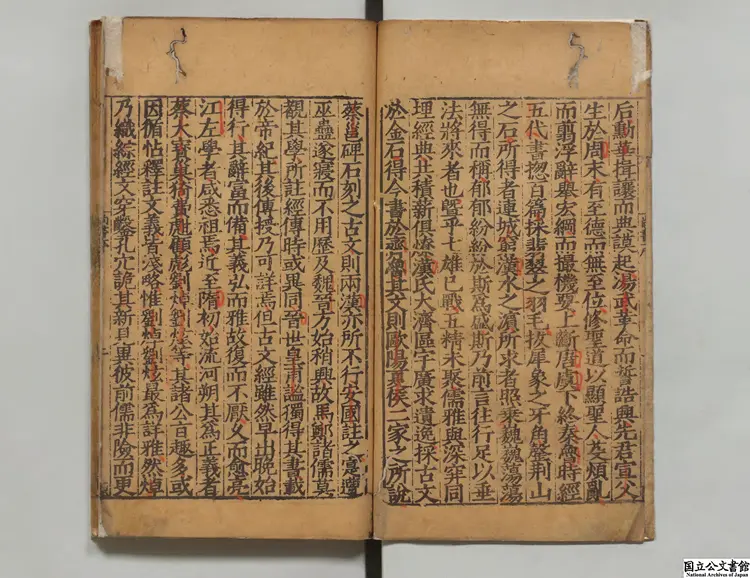 后勛華揖讓而典謨起湯武革命而誓誥興先君宣父
生於周末有至德而無至位修聖道以顯聖人芟煩亂
而翦浮辭舉宏綱而撮機要上斷唐虞下終秦魯時經
五代書揔百篇採翡翠之羽毛拔犀象之牙角罄荊山
之石所得者連城窮漢水之濱所求者照乘巍巍蕩蕩
無得而稱郁郁紛紛於斯爲盛斯乃前言往行足以垂
法將來者也曁乎七雄已戰五精未聚儒雅與深穽同
埋經典共積薪俱燎漢氏大濟區宇廣求遺逸採古文
於金石得今書於齊魯其文則歐陽夏侯二家之所說
蔡邕碑石刻之古文則兩漢亦所不行安國註之寔遭
巫蠱遂寢而不用歷及魏晉方始稍興故馬鄭諸儒莫
觀其學所註經傳時或異同晉世皇甫謐獨得其書載
於帝紀其後傳授乃可詳焉但古文經雖然早出晚始
得行其辭富而備其義弘而雅故復而不厭久而愈亮
江左學者咸悉祖焉近至隋初始流河朔其爲正義者
蔡大寶巢猗費甝顧彪劉焯劉炫等其諸公旨趣多或
因循怗釋註文義皆淺略惟劉焯劉炫最爲詳雅然焯
乃織綜經文穿鑿孔穴詭其新見異彼前儒非險而更
国立公文書館
National Archives of Japan